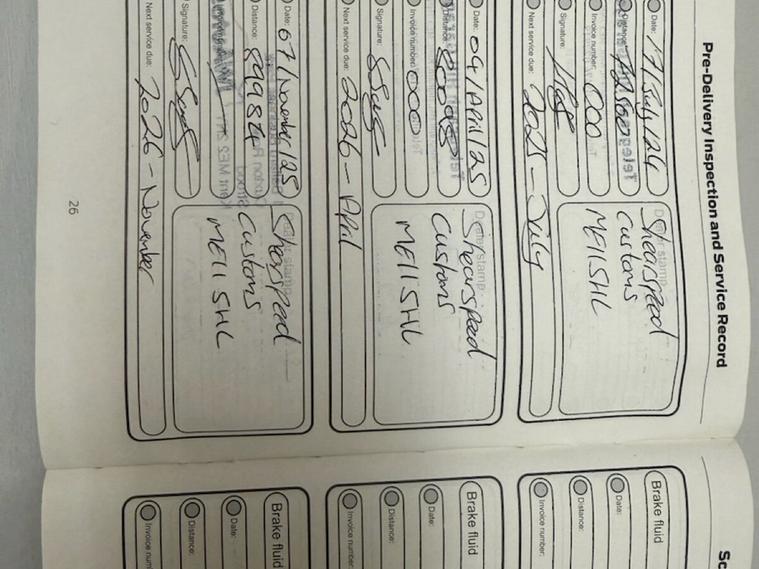 Pre-Delivery Inspection and Service Record
Date: 17/July/24
Distance:
Invoice number: 000
Signature:
Next service due: 2025 - July
Shearspeed
Customs
ME11 5HL
Date: 04/April/25
Distance: 80008
Invoice number: 000
Signature:
Next service due: 2026 - April
Shearspeed
Customs
ME11 5HL
Date: 07/November/25
Distance: 89984
Signature:
Next service due: 2026 - November
Shearspeed
Customs
ME11 5HL
26
Sc
Brake fluid
Date:
Distance:
Invoice number:
Brake fluid
Date:
Distance:
Invoice number:
Brake fluid
Date:
Distance:
Invoice num